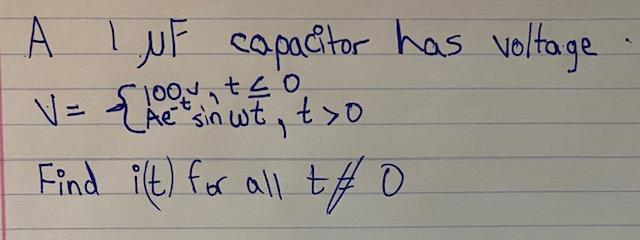 A 1 μF capacitor has voltage.
V = { 100V, t ≤ 0
Ae^-t sin ωt, t > 0
Find i(t) for all t ≠ 0